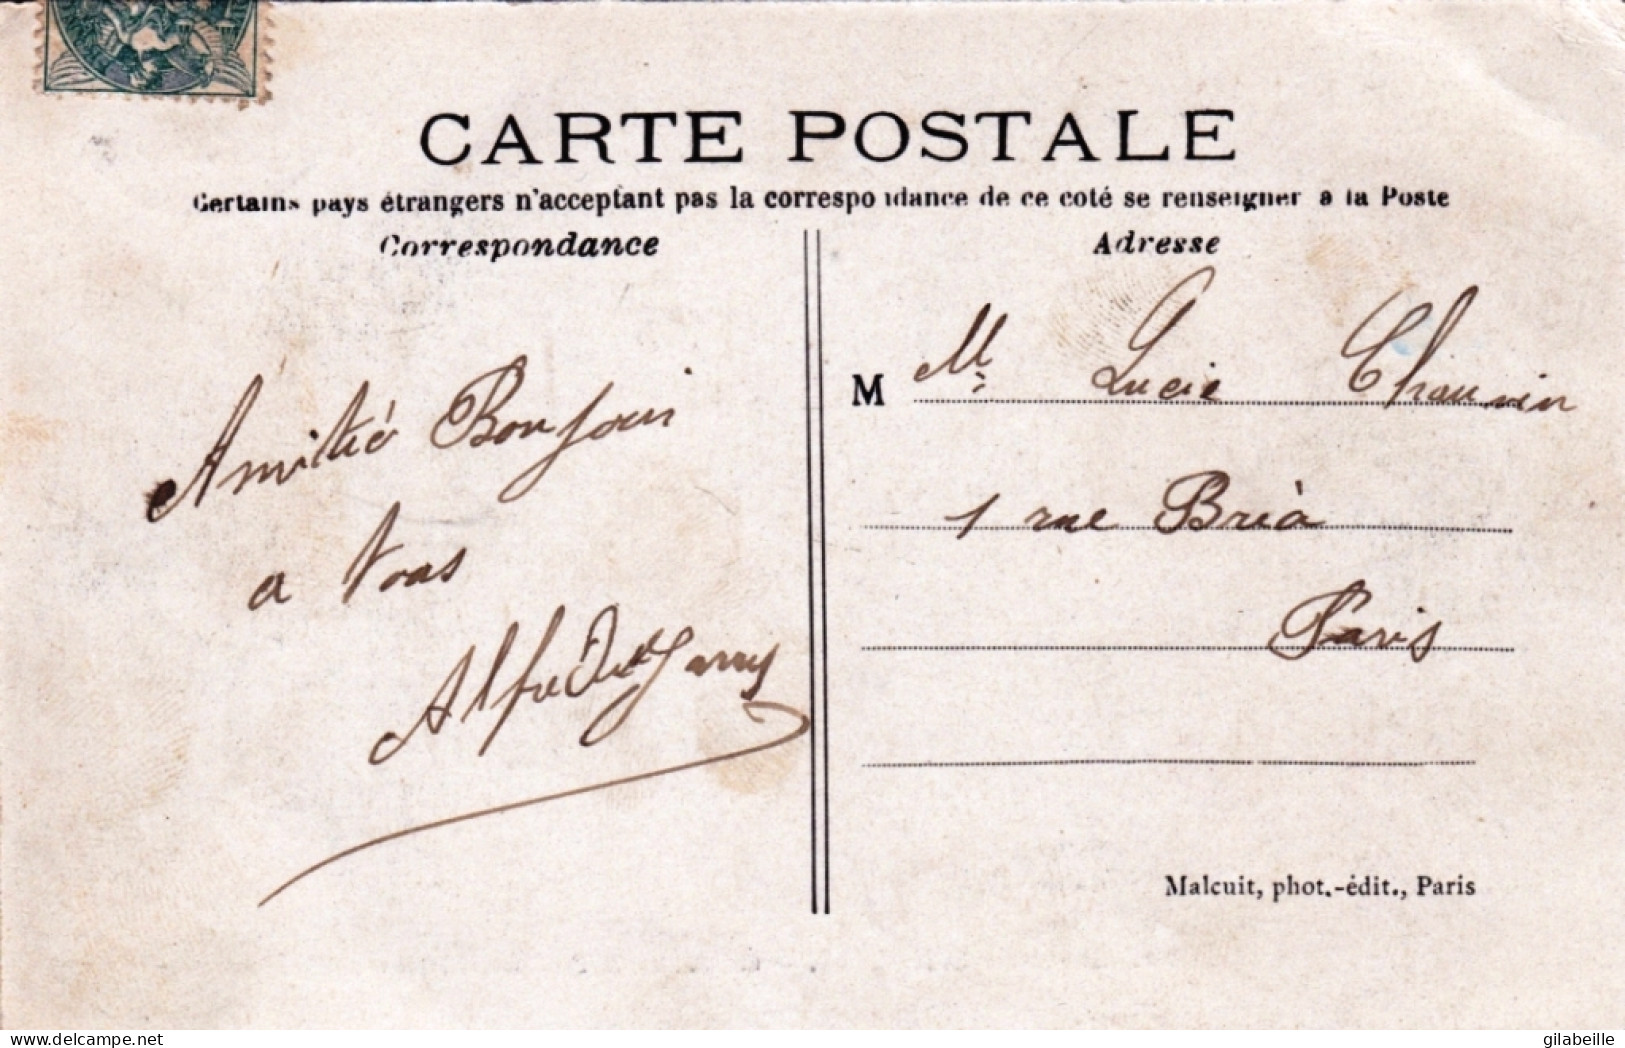 CARTE POSTALE
Certains pays étrangers n'acceptant pas la correspondance de ce coté se renseigner a la Poste
Correspondance
Adresse
M Mlle Lucie Chauvin
1 rue Bria
Paris
Amitié Bonjour
a tous
Alfred
Malcuit, phot.-édit., Paris
delcampe.net
gilabeille